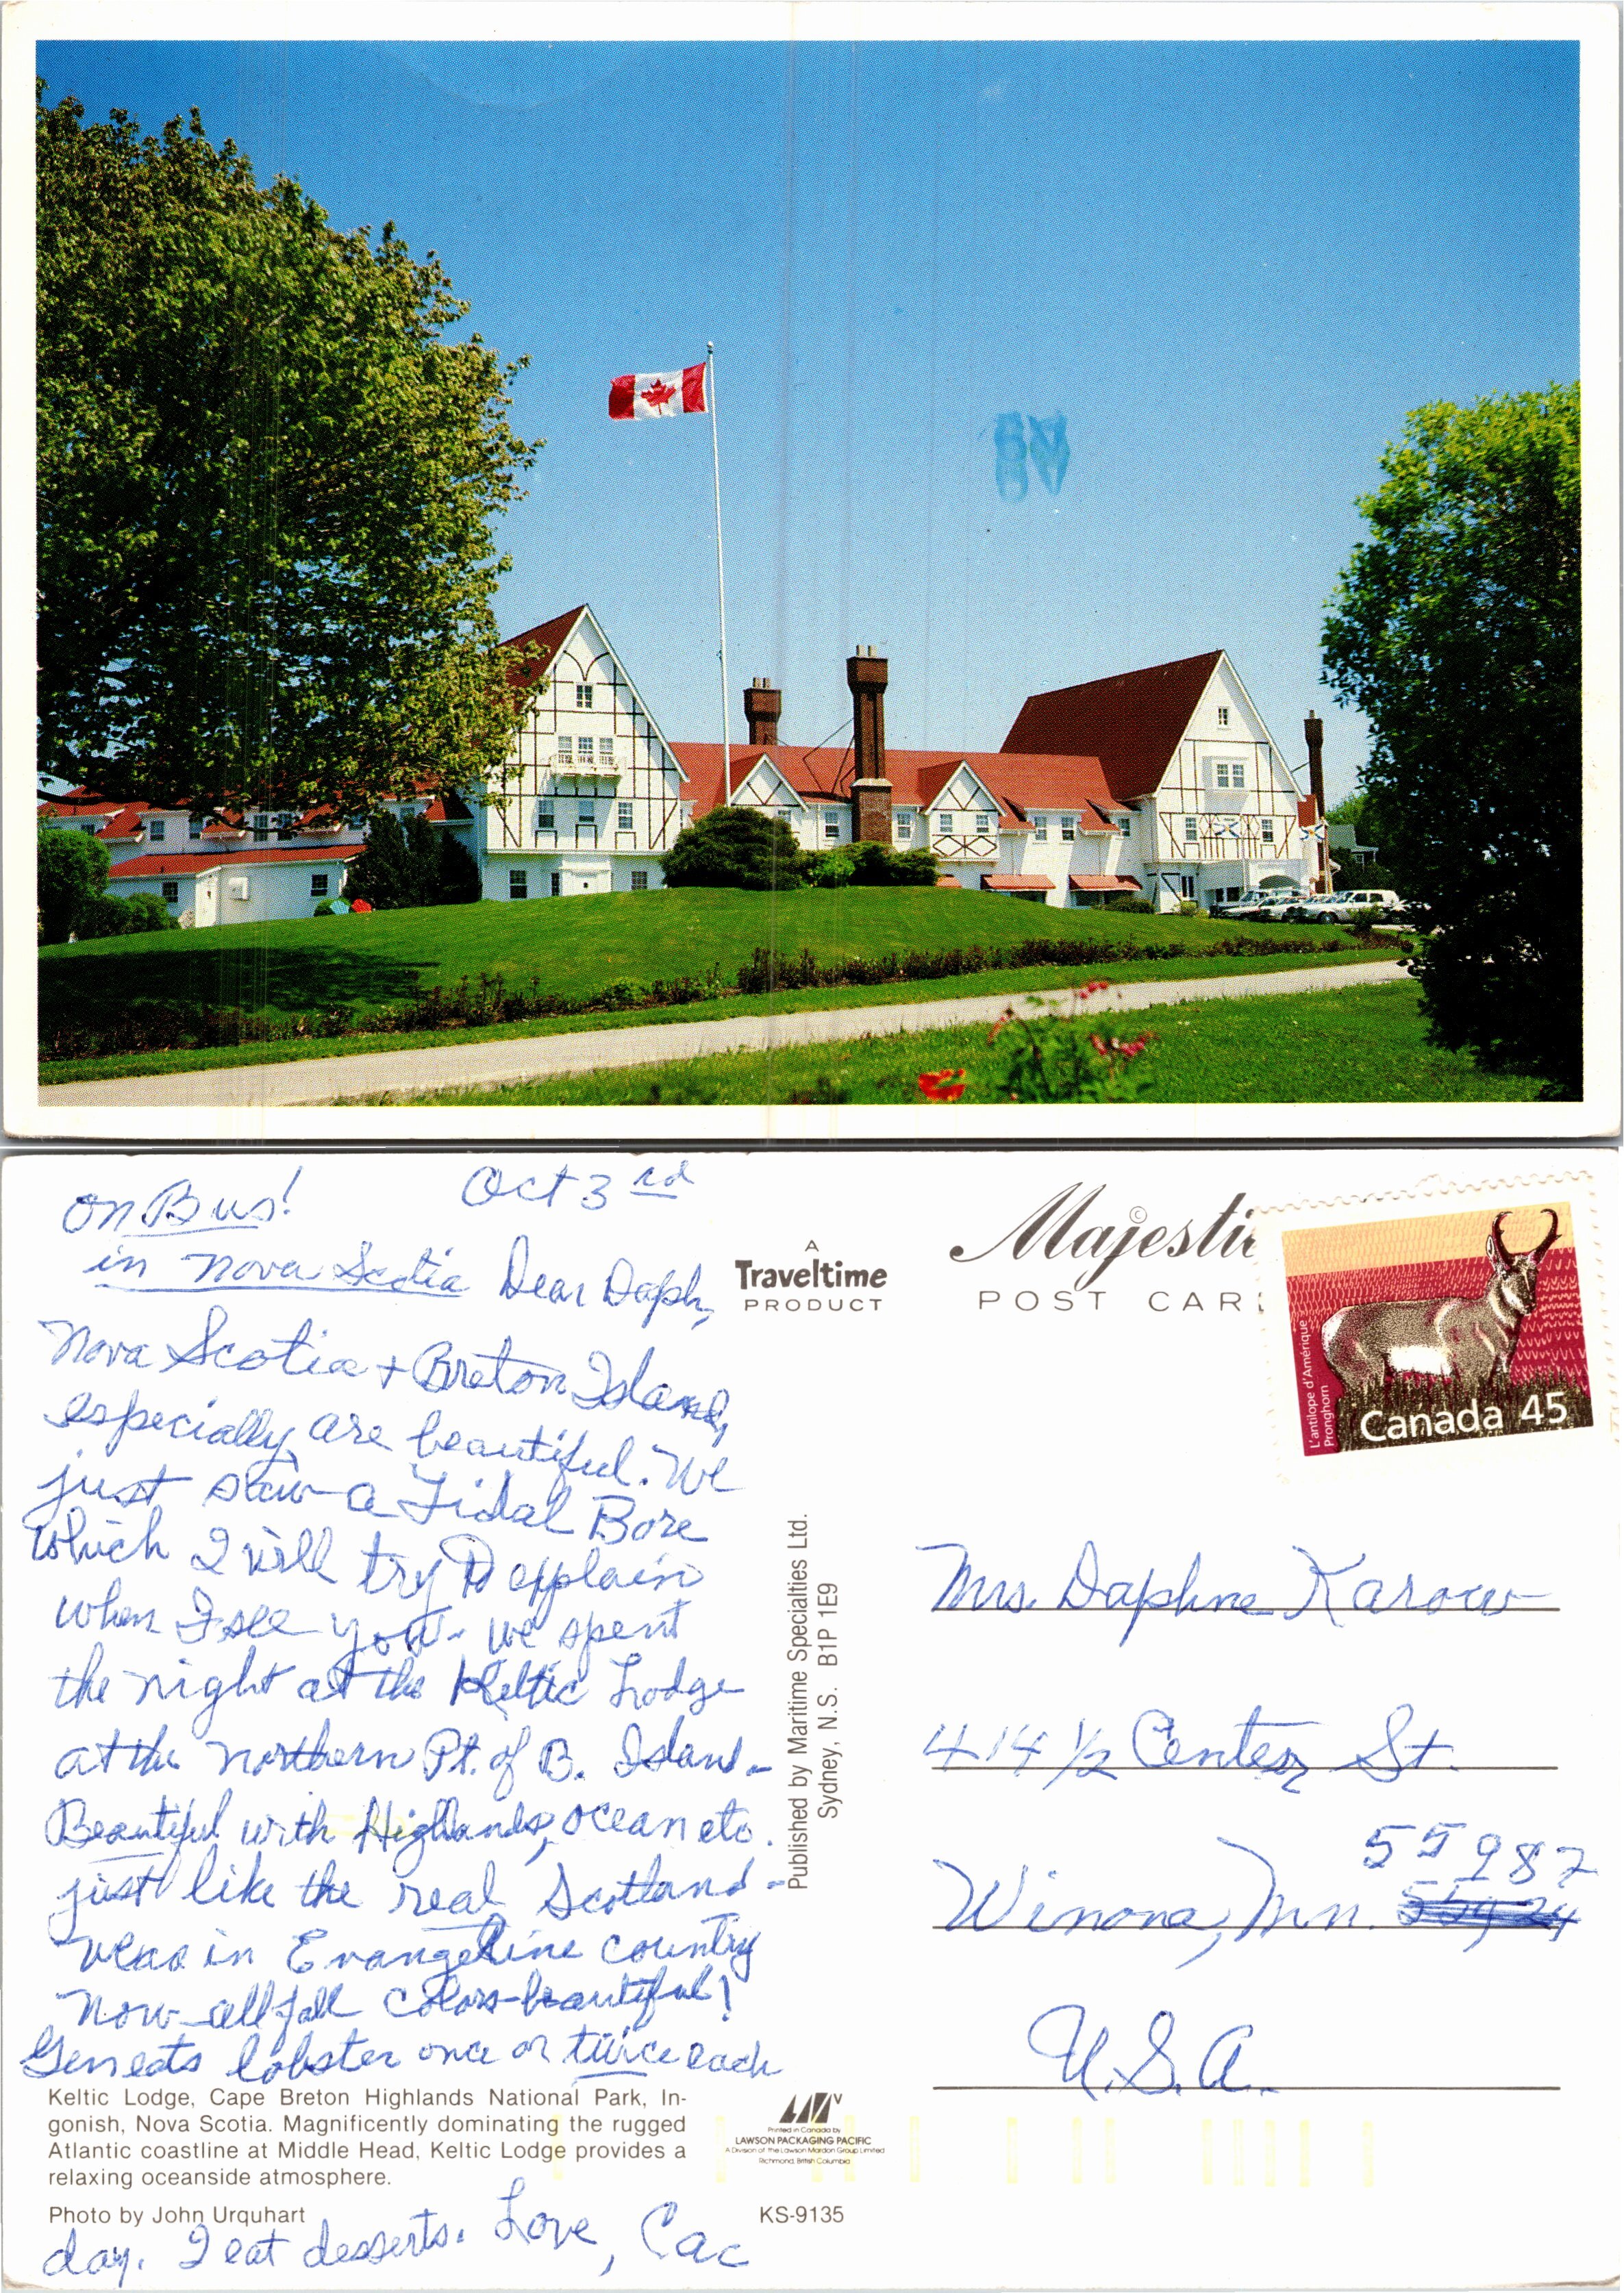 On Bus!
Oct 3rd
in Nova Scotia Dear Daph,
Nova Scotia + Breton Island,
especially are beautiful. We
just saw a Tidal Bore
which I will try to explain
when I see you - we spent
the night at the Keltic Lodge
at the northern Pt. of B. Island -
Beautiful with Highlands, ocean etc.
just like the real Scotland -
in Evangeline country
now - all fall colors - beautiful!
Gen eats lobster once or twice each
day. I eat desserts. Love, Cac
Keltic Lodge, Cape Breton Highlands National Park, In-
gonish, Nova Scotia. Magnificently dominating the rugged
Atlantic coastline at Middle Head, Keltic Lodge provides a
relaxing oceanside atmosphere.
Photo by John Urquhart
KS-9135
A
Traveltime
PRODUCT
Published by Maritime Specialties Ltd.
Sydney, N.S. B1P 1E9
Printed in Canada by
LAWSON PACKAGING PACIFIC
A Division of the Lawson Mardon Group Limited
Richmond, British Columbia
©
Majesti
POST CAR
L'antilope d'Amérique
Pronghorn
Canada 45
Mrs. Daphne Karow
414 1/2 Center St.
55987
Winona, Mn. 55924
U.S.A.